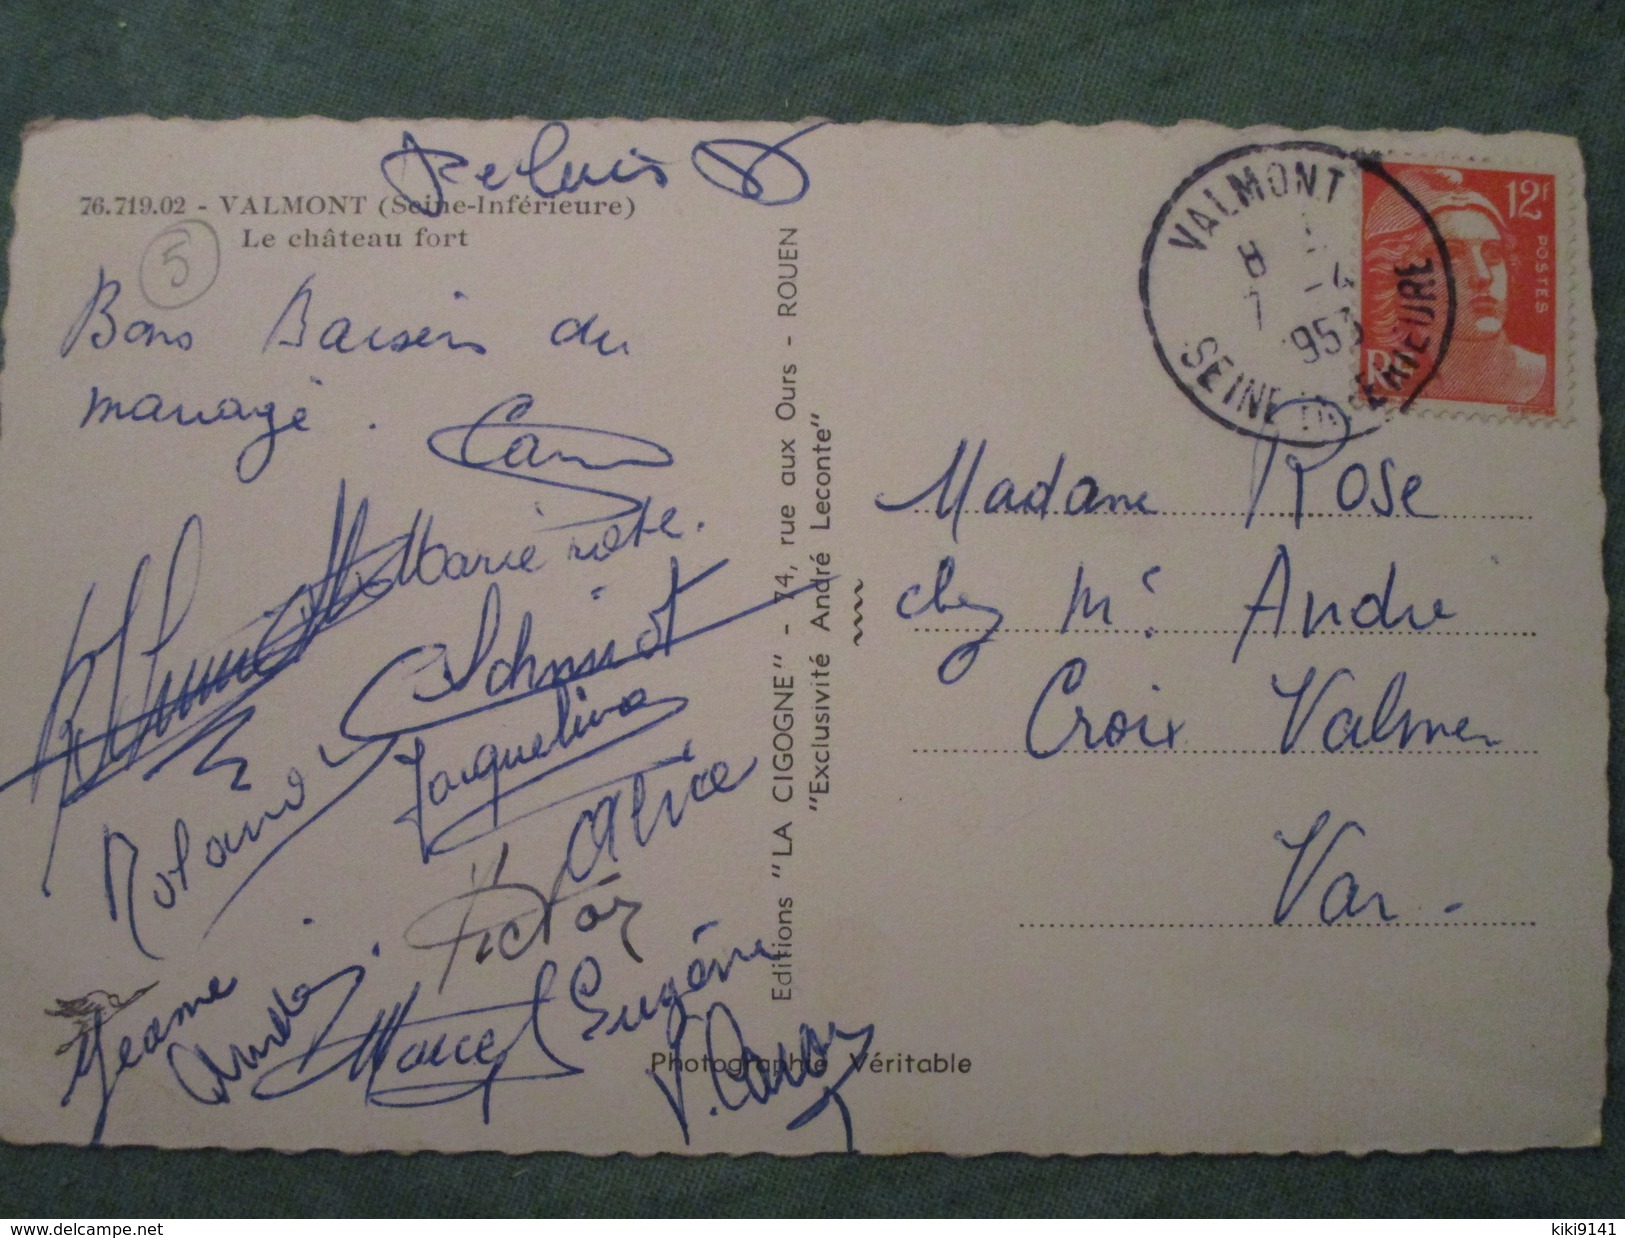 76.719.02 - VALMONT (Seine-Inférieure)
Le château fort
5
Bons Baisers du
mariage.
Marie
Schmidt
Roland
Jacqueline
Alice
Victor
Jeanne
Marcel
Eugénie
Editions "LA CIGOGNE" - 74, rue aux Ours - ROUEN
"Exclusivité André Leconte"
Photographie Véritable
VALMONT
SEINE INFERIEURE
12F
POSTES
RF
Madame Rose
chez Mr André
Croix Valmer
Var -
www.delcampe.net
kiki9141